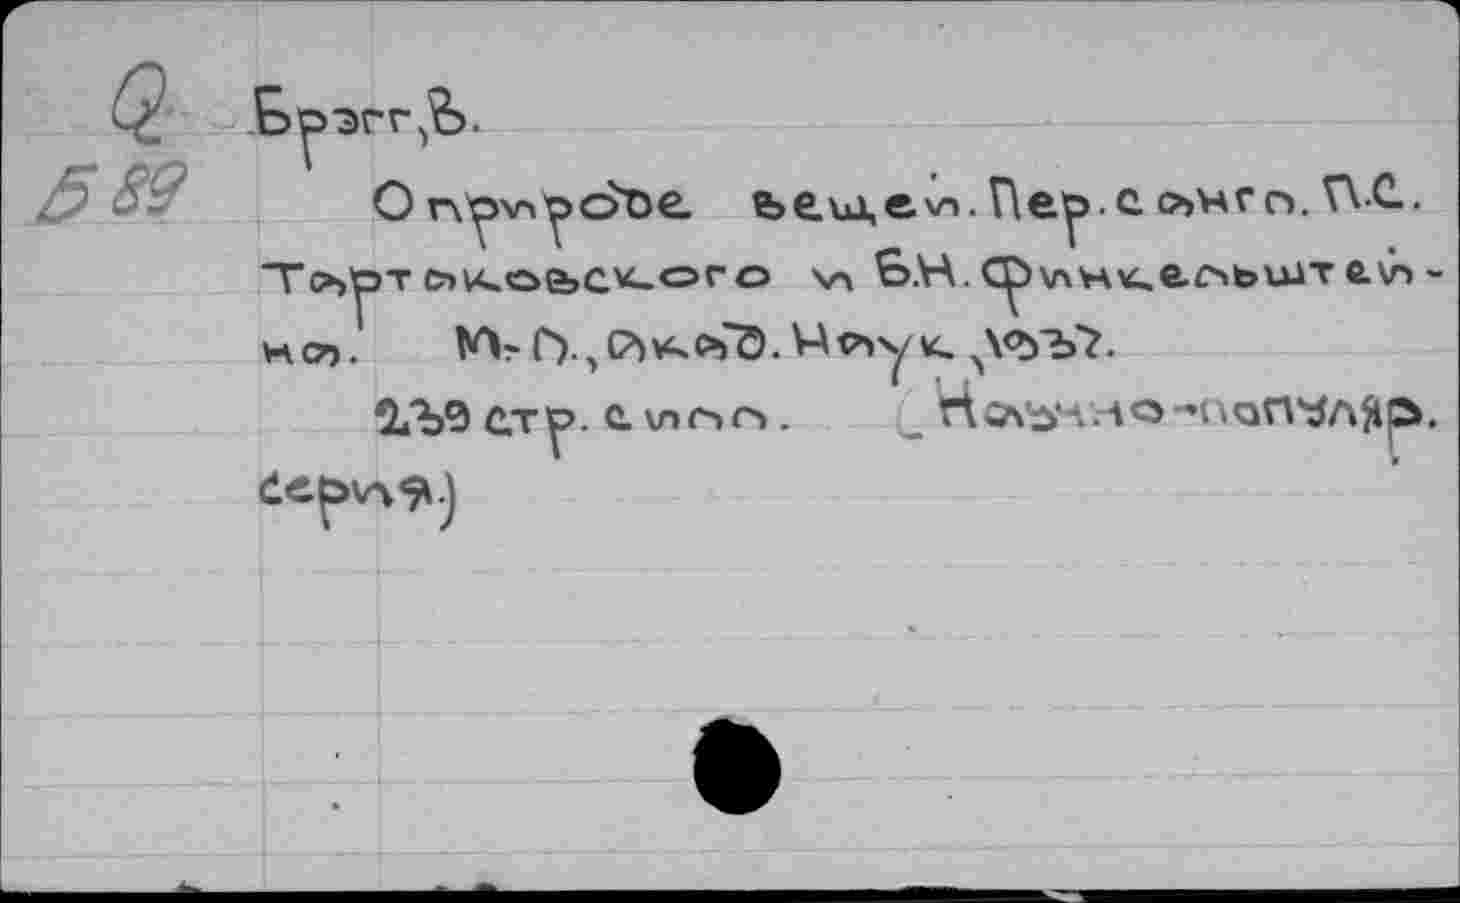 Q Брэгг, В.
Б89 О природе вещей. Пер. с англ. П.С.
Тартаковского и Б.Н. Финкельштей-
на. М.-Л., Акад. Наук, 1937.
239 стр. с илл. (Научно-популяр.
серия.)